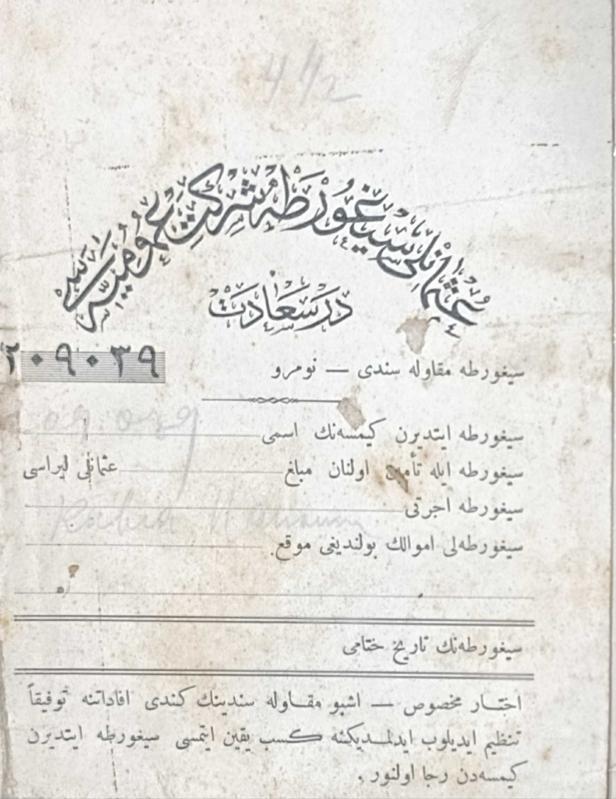 442
عثمانلی سیغورطه شركت عمومیه‌سی
در سعادت
سیغورطه مقاوله سندی — نومرو ٢٠٩٠٣٩
209.039
سیغورطه ایتدیرن كیمسه‌نك اسمی
سیغورطه ایله تأمین اولنان مبلغ عثمانلی لیراسی
سیغورطه اجرتی
سیغورطه‌لی اموالك بولندیغی موقع
سیغورطه‌نك تاریخ ختامی
اخطار مخصوص — اشبو مقاوله سندینك كندی افاداتنه توفیقاً
تنظیم ایدیلوب ایدلمدیكنه كسب یقین ایتمسی سیغورطه ایتدیرن
كیمسه‌دن رجا اولنور .